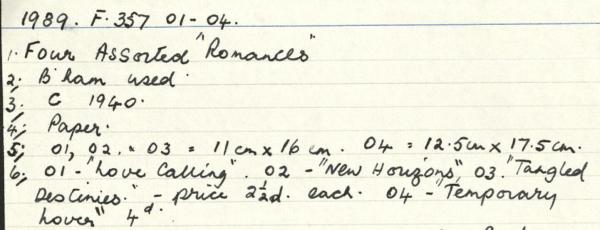 1989. F. 357 01-04.
1. Four Assorted "Romances"
2. B'ham used.
3. C 1940.
4. Paper.
5. 01, 02. = 03 = 11cm x 16cm. 04 = 12.5cm x 17.5cm.
6. 01 - "Love Calling". 02 - "New Horizons", 03. "Tangled
Destinies." - price 2½d. each. 04 - "Temporary
Lover" 4d.